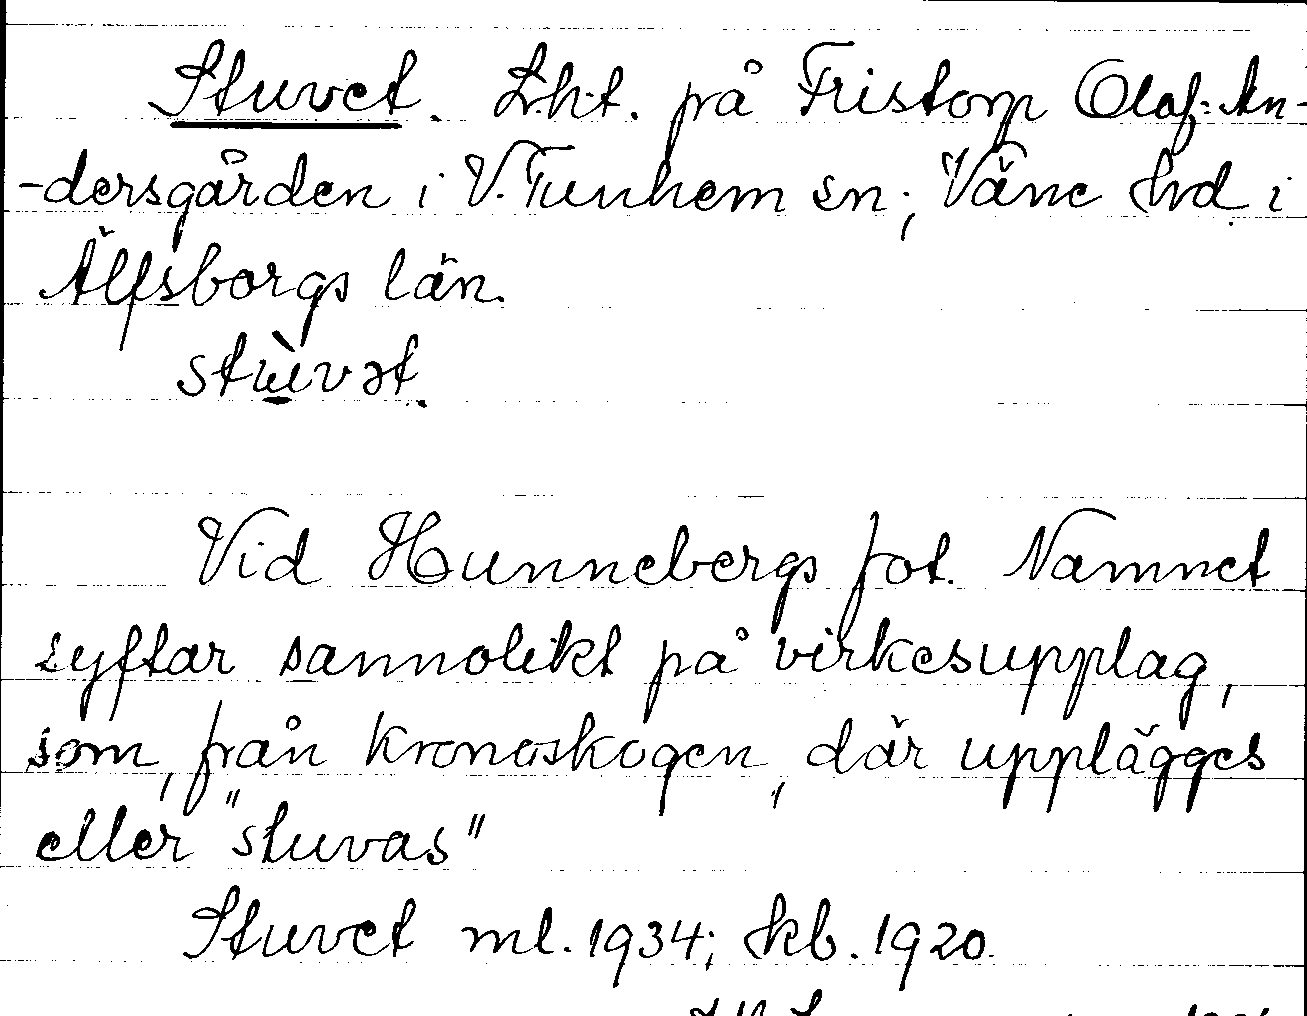 Stuvet. Lht. på Fristorp Olof-An-
-dersgården i V. Tunhem sn; Väne hd i
Älfsborgs län.
stù̱vət.
Vid Hunnebergs fot. Namnet
syftar sannolikt på virkesupplag,
som, från kronoskogen, där upplägges
eller "stuvas"
Stuvet ml. 1934; kb. 1920.